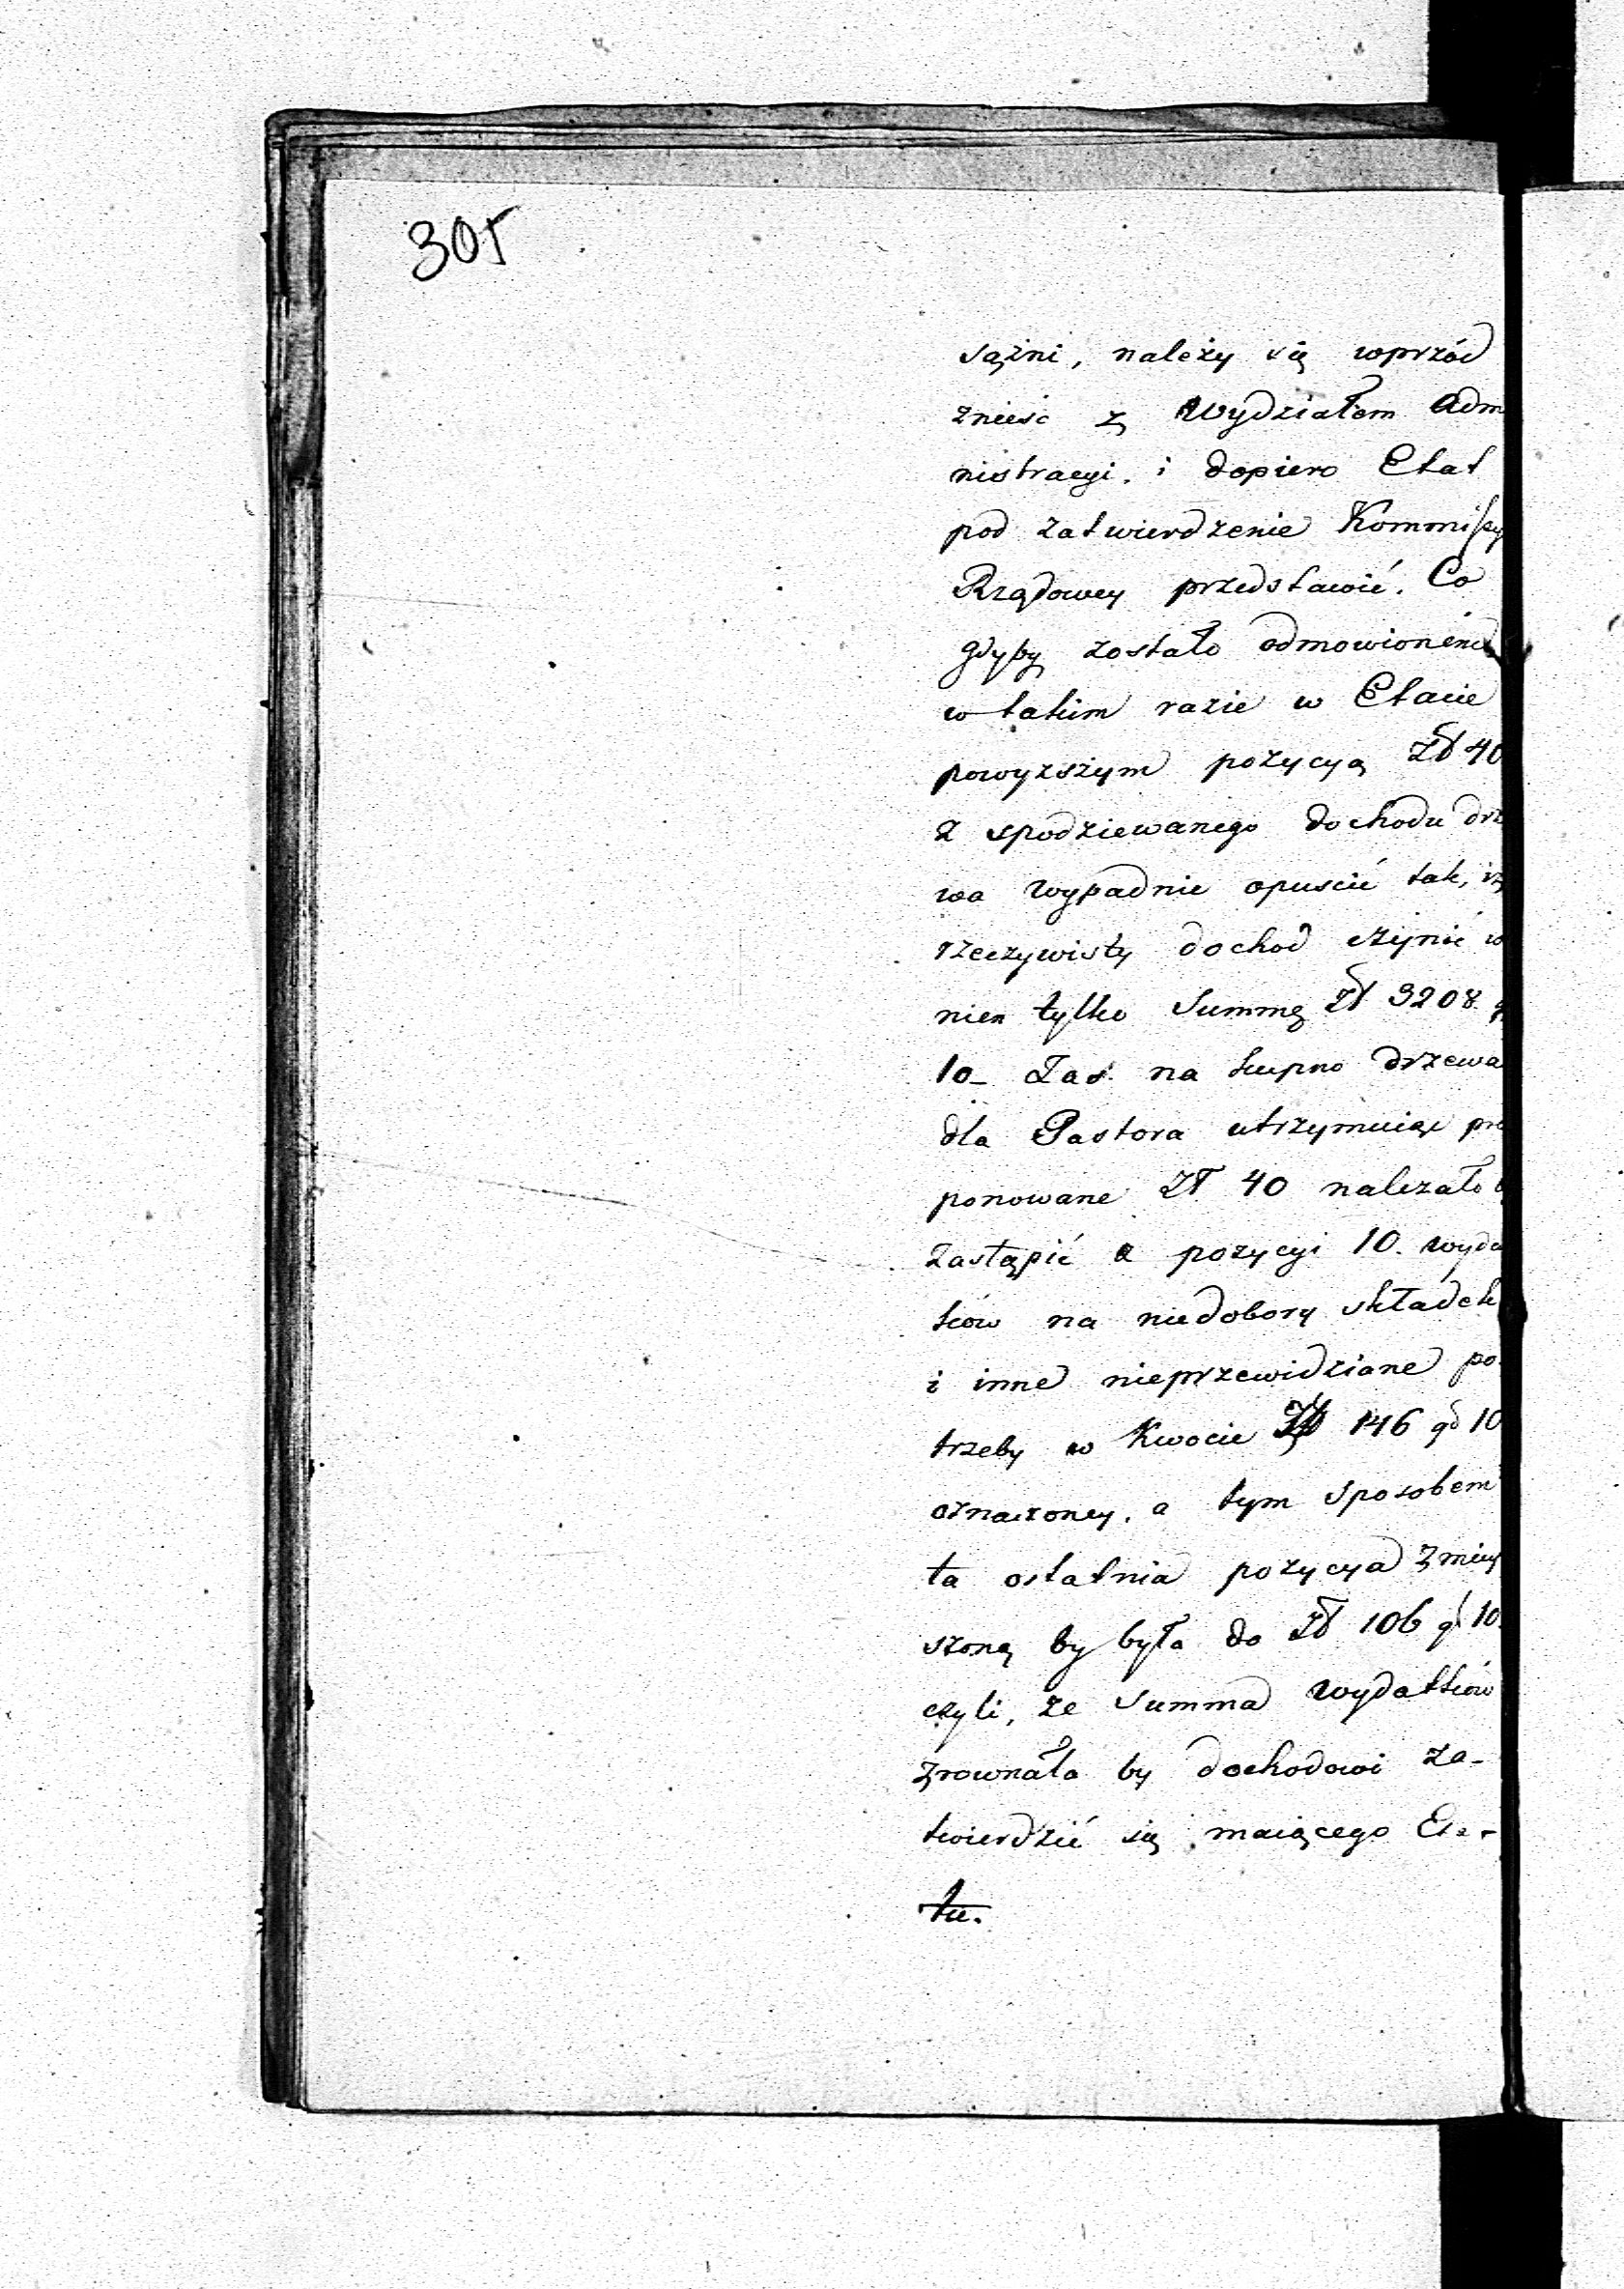 305
sążni, należy się wprzód
znieść z Wydziałem Adm
nistracyi. i dopiero Etat
pod zatwierdzenie Kommissy
Rządowey przedstawić. Co
gdyby zostało odmowioném
w takim razie w Etacie
powyższym pozycyą Zł 40
z spodziewanego dochodu drz
wa wypadnie opuścić tak, iż
rzeczywisty dochod czynić w
nien tylko Summę Zł 3208 g
10_ Zaś na kupno drzewa
dla Pastora utrzymuiąc pro
ponowane Zł 40 należało b
zastąpić z pozycyi 10. wyda
tków na niedobory składek
i inne nieprzewidziane po
trzeby w Kwocie Zł 146 gr 10
oznaczoney. a tym sposobem
ta ostatnia pozycya zmiey
szoną by była do Zł 106 gr 10.
czyli, że Summa Wydatków
zrownała by dochodowi za-
twierdzić się maiącego Eta-
tu.